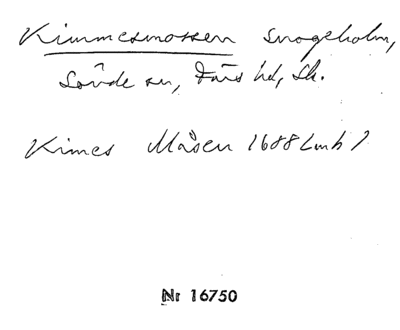 Kimmesmossen Snogeholm,
Sövde sn, Färs hd, Sk.
Kimes Måsen 1688 Lmh 1
Nr 16750